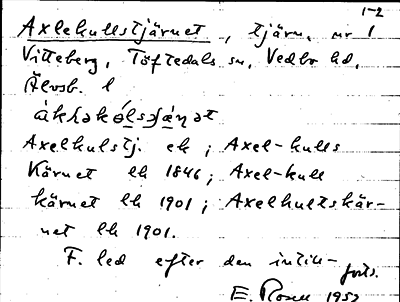 1-2
Axlehullstjärnet, tjärn, nr 1
Vitteberg, Töftedals sn, Vedbo hd,
Älvsb. l
Axelhulstj. ek; Axel-hulls
Kärnet lk 1846; Axel-kull
kärnet lk 1901; Axelhultskär-
net lk 1901.
F. led efter den intill-
forts.
E. Rosell 1952